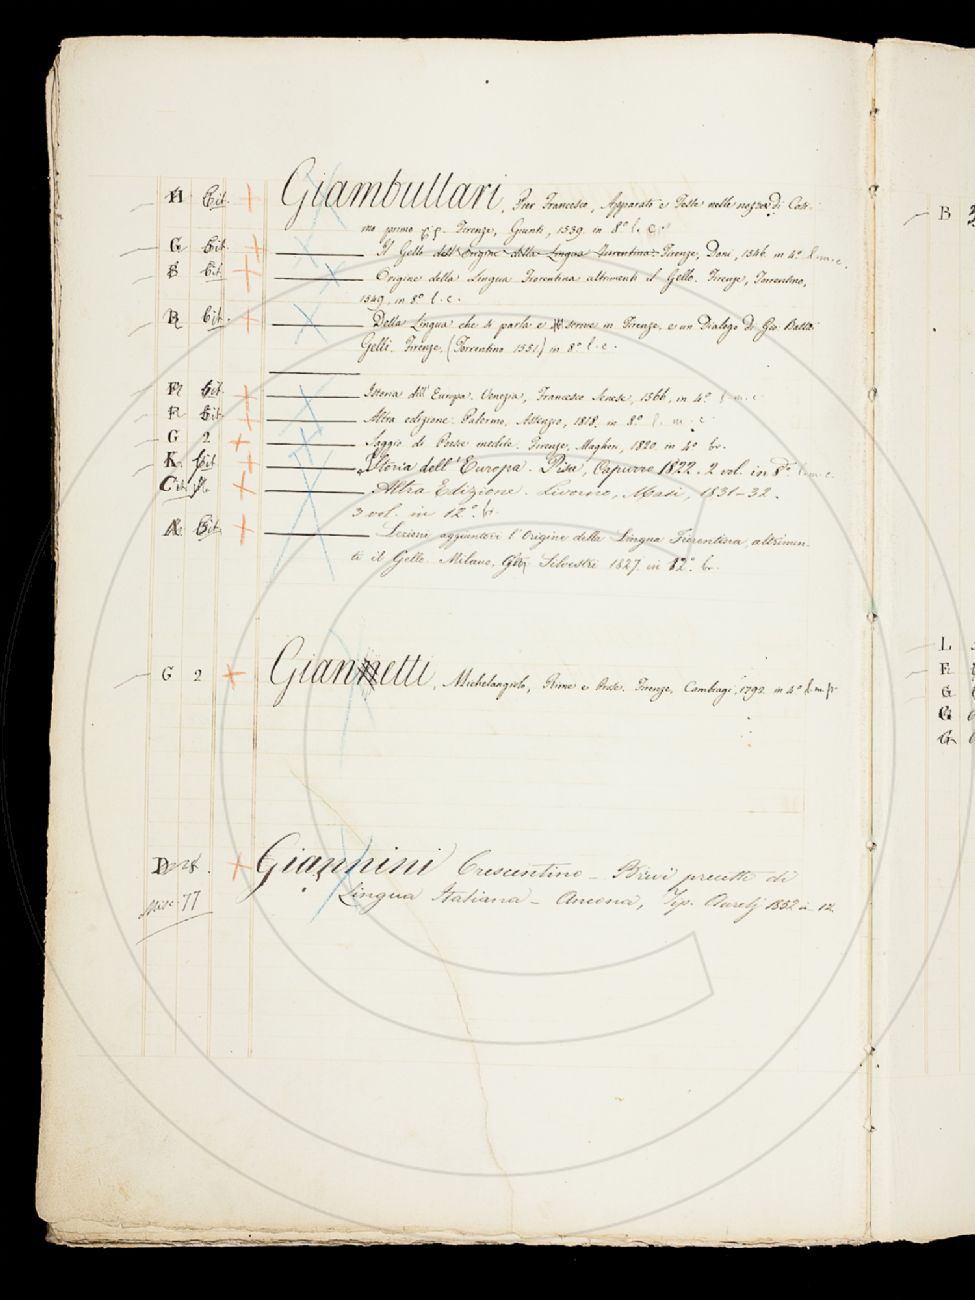 H Cit. Giambullari, Pier Francesco, Apparato e Feste nelle nozze di Cosi-
mo primo. Firenze, Giunti, 1539. in 8.° l. c.
G Cit. Il Gello dell'Origine della Lingua Fiorentina. Firenze, Doni, 1546. in 4.° l. m. c.
Cit. Origine della Lingua Fiorentina altrimenti il Gello. Firenze, Torrentino,
1549, in 8.° l. c.
R Cit. Della Lingua che si parla e scrive in Firenze, e un Dialogo di Gio. Batta
Gelli. Firenze, (Torrentino 1551) in 8.° l. c.
F Cit. Istoria dell'Europa. Venezia, Francesco Senese, 1566. in 4.° l. m. c.
Cit. Altra edizione. Palermo, Assenzio, 1818. in 8.° l. m. c.
G 2 Saggio di Poesie inedite. Firenze, Magheri, 1820. in 4.° br.
K Cit. Storia dell'Europa. Pisa, Capurro 1822. 2 vol. in 8.° l. m. c.
Altra Edizione. Livorno, Masi, 1831-32.
3 vol. in 12.° br.
A Cit. Lezioni aggiuntovi l'Origine della Lingua Fiorentina, altrimen-
ti il Gello. Milano, Silvestri 1827. in 12.° br.
G 2 Giannetti, Michelangiolo, Rime e Prose. Firenze, Cambiagi, 1792. in 4.°
Giannini Crescentino - Brevi precetti di
Misc. 77 Lingua Italiana - Ancona, Tip. Aurelj 1852 in 12.
B
L
F
G
G
G